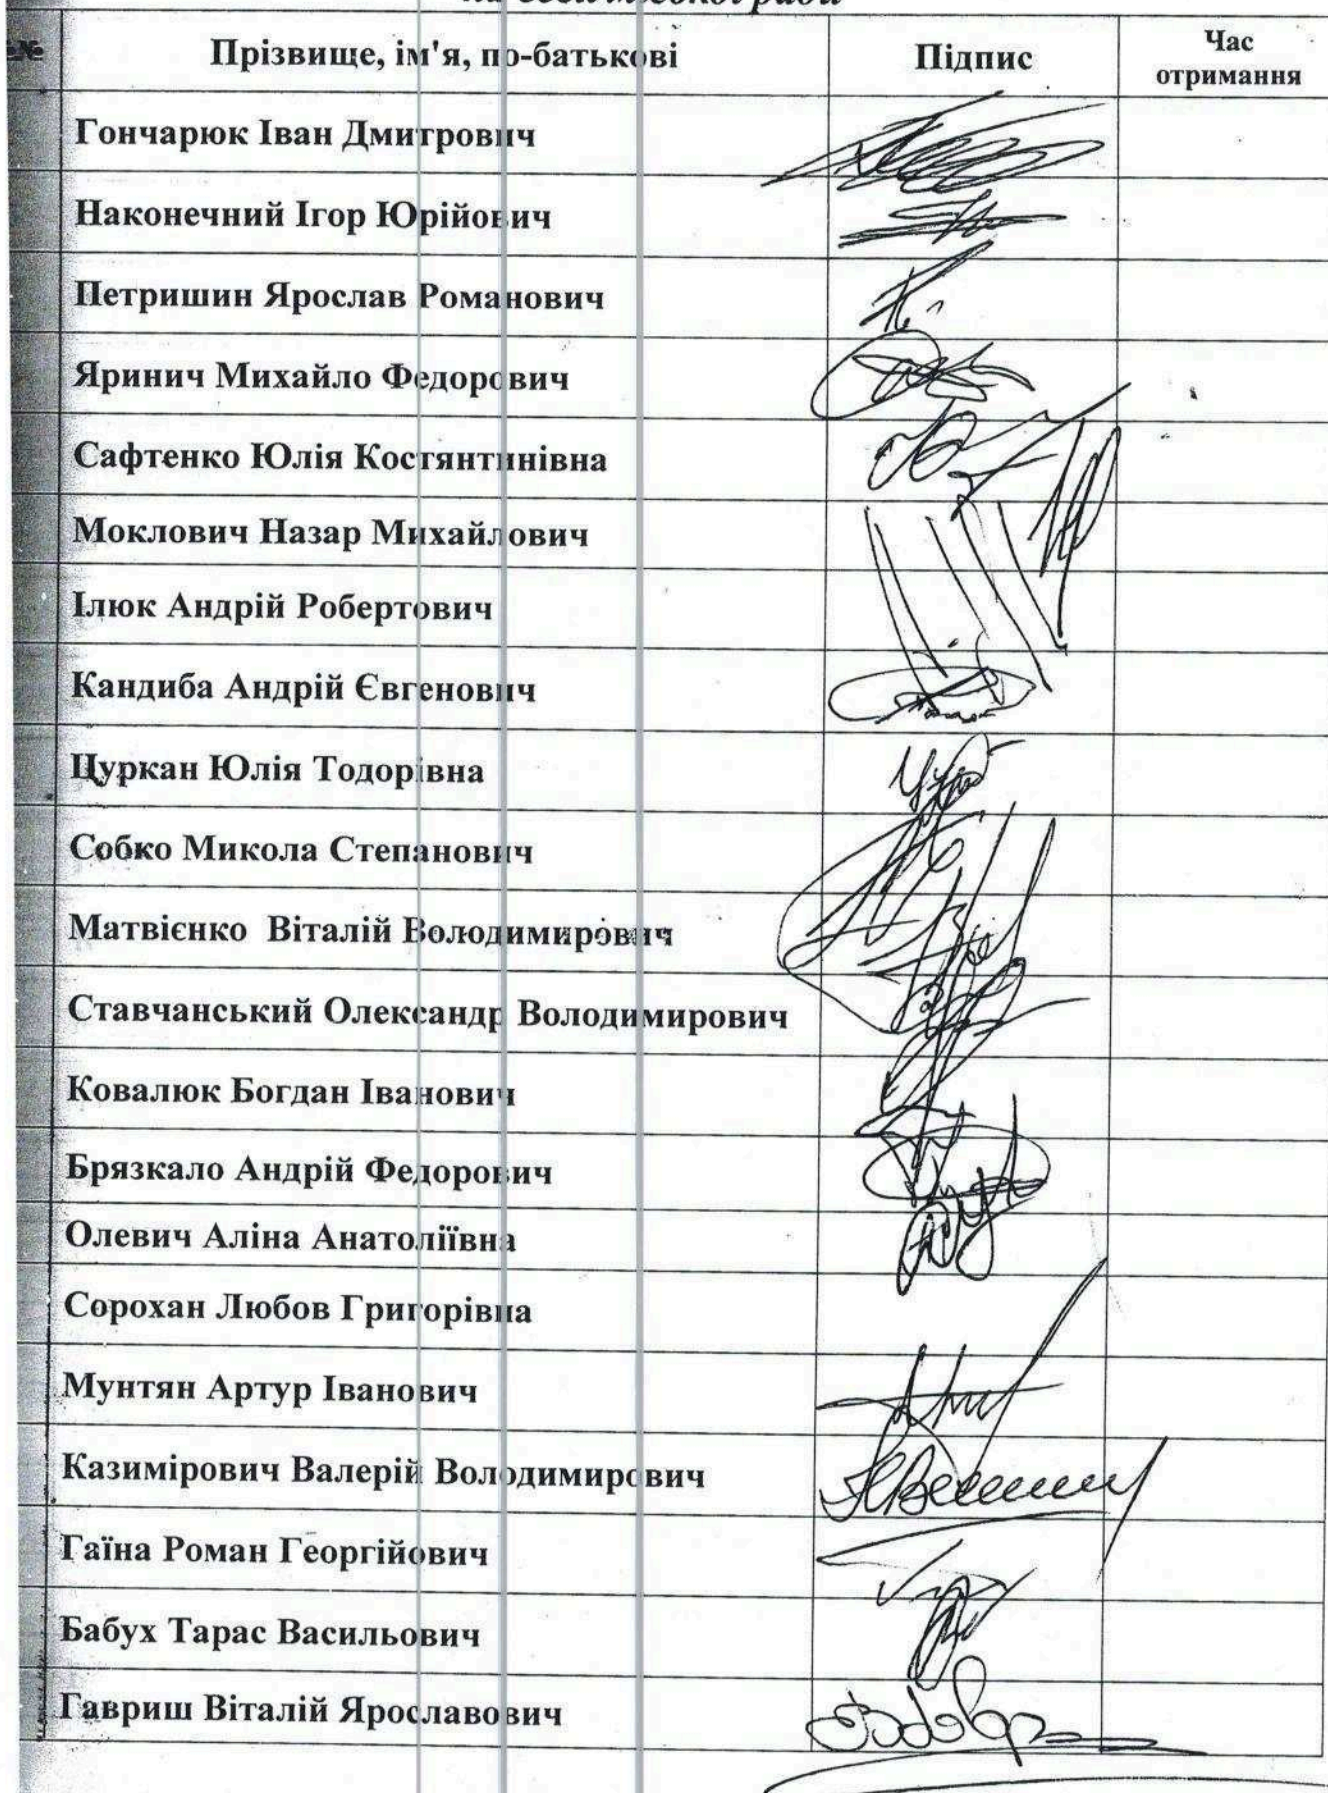 Прізвище, ім'я, по-батькові Підпис Час отримання
Гончарюк Іван Дмитрович
Наконечний Ігор Юрійович
Петришин Ярослав Романович
Яринич Михайло Федорович
Сафтенко Юлія Костянтинівна
Моклович Назар Михайлович
Ілюк Андрій Робертович
Кандиба Андрій Євгенович
Цуркан Юлія Тодорівна
Собко Микола Степанович
Матвієнко Віталій Володимирович
Ставчанський Олександр Володимирович
Ковалюк Богдан Іванович
Брязкало Андрій Федорович
Олевич Аліна Анатоліївна
Сорохан Любов Григорівна
Мунтян Артур Іванович
Казимірович Валерій Володимирович
Гаїна Роман Георгійович
Бабух Тарас Васильович
Гавриш Віталій Ярославович